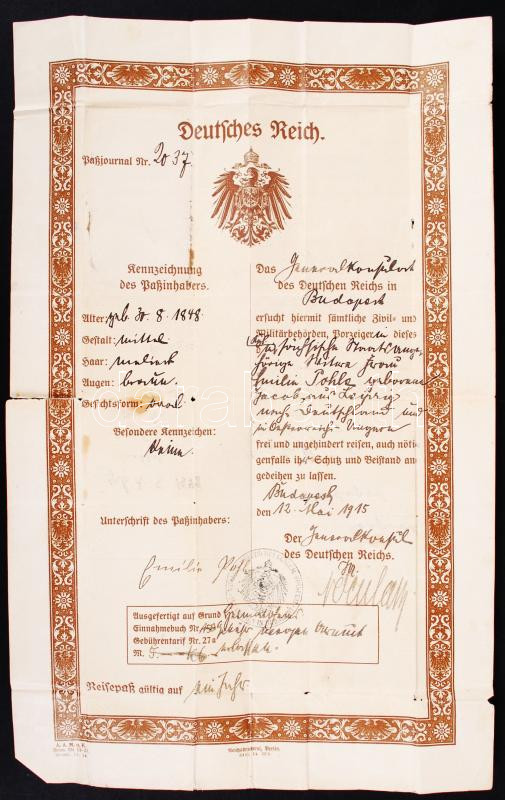 Deutsches Reich.
Paßjournal Nr. 2037
Kennzeichnung
des Paßinhabers.
Alter: geb. 30. 8. 1848.
Gestalt: mittel
Haar: meliert
Augen: braun.
Gesichtsform: oval
Besondere Kennzeichen:
keine.
Unterschrift des Paßinhabers:
Emilie Pohle
Das Generalkonsulat
des Deutschen Reichs in
Budapest
ersucht hiermit sämtliche Zivil- und
Militärbehörden, Vorzeigerin dieses
die sächsische Staatsange-
hörige Witwe Frau
Emilie Pohle geborene
Jacob, aus Leipzig
nach Deutschland und
in Oesterreich-Ungarn
frei und ungehindert reisen, auch nötig
genfalls ihr Schutz und Beistand an
gedeihen zu lassen.
Budapest
den 12. Mai 1915
Der Generalkonsul
des Deutschen Reichs.
Ausgefertigt auf Grund
Einnahmebuch Nr. wegen Armut
Gebührentarif Nr. 27a
M. 5.—
Reisepaß gültig auf ein Jahr
Reichsdruckerei, Berlin.